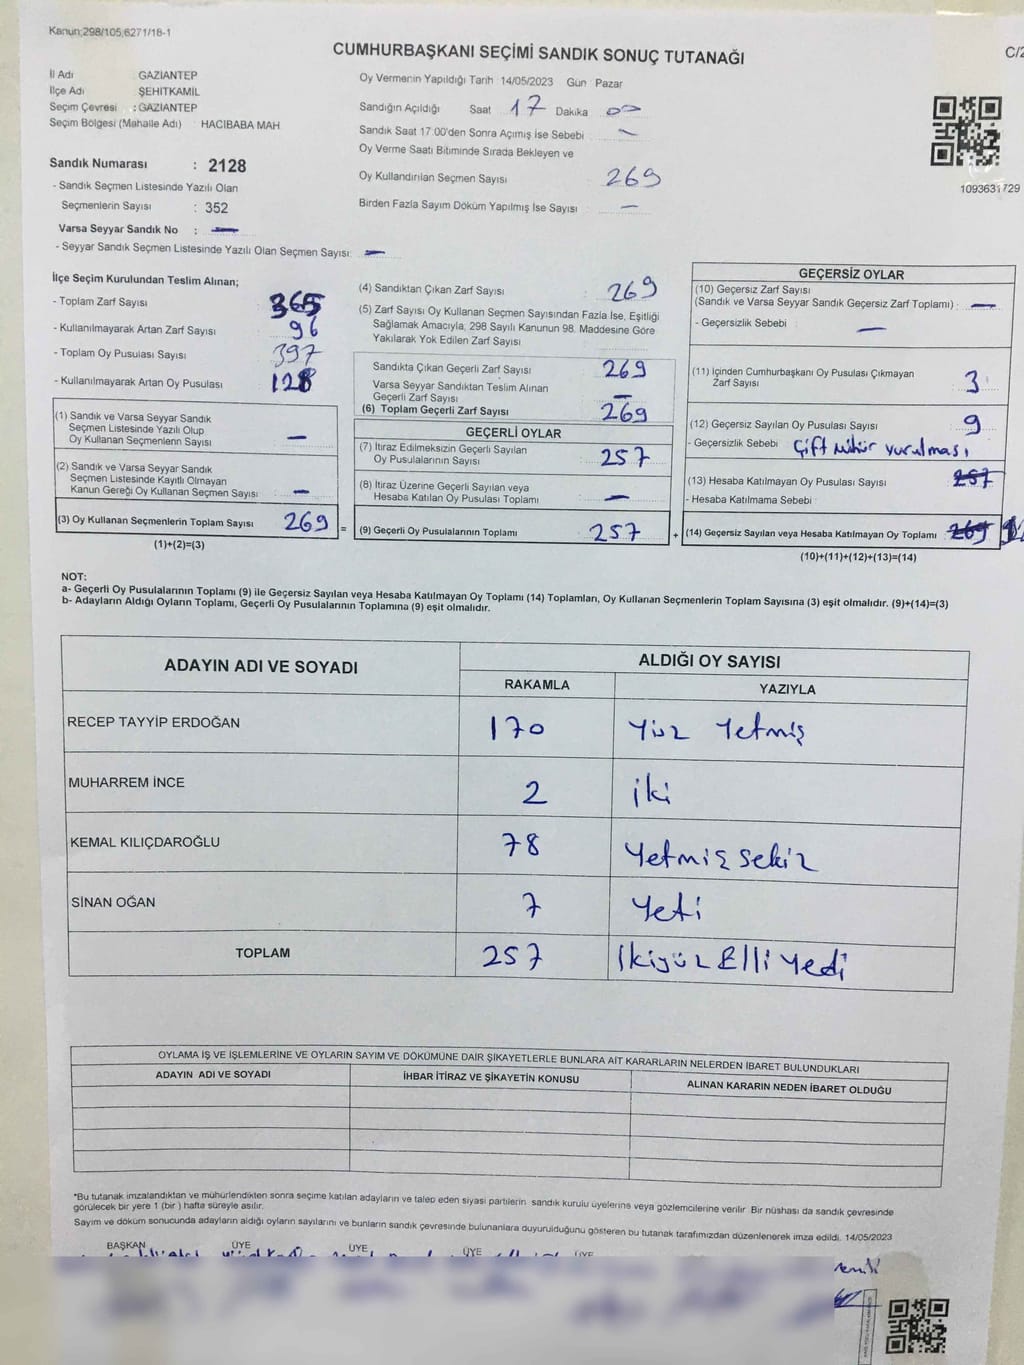 Kanun;298/105;6271/18-1
CUMHURBAŞKANI SEÇİMİ SANDIK SONUÇ TUTANAĞI
C/2
İl Adı GAZİANTEP
İlçe Adı ŞEHİTKAMİL
Seçim Çevresi : GAZİANTEP
Seçim Bölgesi (Mahalle Adı) HACIBABA MAH
Sandık Numarası : 2128
- Sandık Seçmen Listesinde Yazılı Olan
Seçmenlerin Sayısı : 352
Varsa Seyyar Sandık No : —
- Seyyar Sandık Seçmen Listesinde Yazılı Olan Seçmen Sayısı: —
Oy Vermenin Yapıldığı Tarih 14/05/2023 Gün Pazar
Sandığın Açıldığı Saat 17 Dakika 00
Sandık Saat 17.00'den Sonra Açımış İse Sebebi —
Oy Verme Saati Bitiminde Sırada Bekleyen ve
Oy Kullandırılan Seçmen Sayısı 269
Birden Fazla Sayım Döküm Yapılmış İse Sayısı —
1093631729
İlçe Seçim Kurulundan Teslim Alınan;
- Toplam Zarf Sayısı 365
- Kullanılmayarak Artan Zarf Sayısı 96
- Toplam Oy Pusulası Sayısı 397
- Kullanılmayarak Artan Oy Pusulası 128
(1) Sandık ve Varsa Seyyar Sandık
Seçmen Listesinde Yazılı Olup
Oy Kullanan Seçmenlerin Sayısı —
(2) Sandık ve Varsa Seyyar Sandık
Seçmen Listesinde Kayıtlı Olmayan
Kanun Gereği Oy Kullanan Seçmen Sayısı —
(3) Oy Kullanan Seçmenlerin Toplam Sayısı 269 =
(1)+(2)=(3)
(4) Sandıktan Çıkan Zarf Sayısı 269
(5) Zarf Sayısı Oy Kullanan Seçmen Sayısından Fazla İse, Eşitliği
Sağlamak Amacıyla, 298 Sayılı Kanunun 98. Maddesine Göre
Yakılarak Yok Edilen Zarf Sayısı
Sandıkta Çıkan Geçerli Zarf Sayısı 269
Varsa Seyyar Sandıktan Teslim Alınan
Geçerli Zarf Sayısı —
(6) Toplam Geçerli Zarf Sayısı 269
GEÇERLİ OYLAR
(7) İtiraz Edilmeksizin Geçerli Sayılan
Oy Pusulalarının Sayısı 257
(8) İtiraz Üzerine Geçerli Sayılan veya
Hesaba Katılan Oy Pusulası Toplamı —
(9) Geçerli Oy Pusulalarının Toplamı 257 +
GEÇERSİZ OYLAR
(10) Geçersiz Zarf Sayısı
(Sandık ve Varsa Seyyar Sandık Geçersiz Zarf Toplamı) : —
- Geçersizlik Sebebi —
(11) İçinden Cumhurbaşkanı Oy Pusulası Çıkmayan
Zarf Sayısı 3
(12) Geçersiz Sayılan Oy Pusulası Sayısı 9
- Geçersizlik Sebebi Çift mühür vurulması
(13) Hesaba Katılmayan Oy Pusulası Sayısı 257
- Hesaba Katılmama Sebebi
(14) Geçersiz Sayılan veya Hesaba Katılmayan Oy Toplamı 269 12
(10)+(11)+(12)+(13)=(14)
NOT:
a- Geçerli Oy Pusulalarının Toplamı (9) ile Geçersiz Sayılan veya Hesaba Katılmayan Oy Toplamı (14) Toplamları, Oy Kullanan Seçmenlerin Toplam Sayısına (3) eşit olmalıdır. (9)+(14)=(3)
b- Adayların Aldığı Oyların Toplamı, Geçerli Oy Pusulalarının Toplamına (9) eşit olmalıdır.
ADAYIN ADI VE SOYADI ALDIĞI OY SAYISI
RAKAMLA YAZIYLA
RECEP TAYYİP ERDOĞAN 170 Yüz Yetmiş
MUHARREM İNCE 2 iki
KEMAL KILIÇDAROĞLU 78 Yetmiş sekiz
SİNAN OĞAN 7 Yeti
TOPLAM 257 İkiyüz Elli Yedi
OYLAMA İŞ VE İŞLEMLERİNE VE OYLARIN SAYIM VE DÖKÜMÜNE DAİR ŞİKAYETLERLE BUNLARA AİT KARARLARIN NELERDEN İBARET BULUNDUKLARI
ADAYIN ADI VE SOYADI İHBAR İTİRAZ VE ŞİKAYETİN KONUSU ALINAN KARARIN NEDEN İBARET OLDUĞU
*Bu tutanak imzalandıktan ve mühürlendikten sonra seçime katılan adayların ve talep eden siyasi partilerin sandık kurulu üyelerine veya gözlemcilerine verilir. Bir nüshası da sandık çevresinde
görülecek bir yere 1 (bir) hafta süreyle asılır.
Sayım ve döküm sonucunda adayların aldığı oyların sayılarını ve bunların sandık çevresinde bulunanlara duyurulduğunu gösteren bu tutanak tarafımızdan düzenlenerek imza edildi. 14/05/2023
BAŞKAN ÜYE ÜYE ÜYE ÜYE